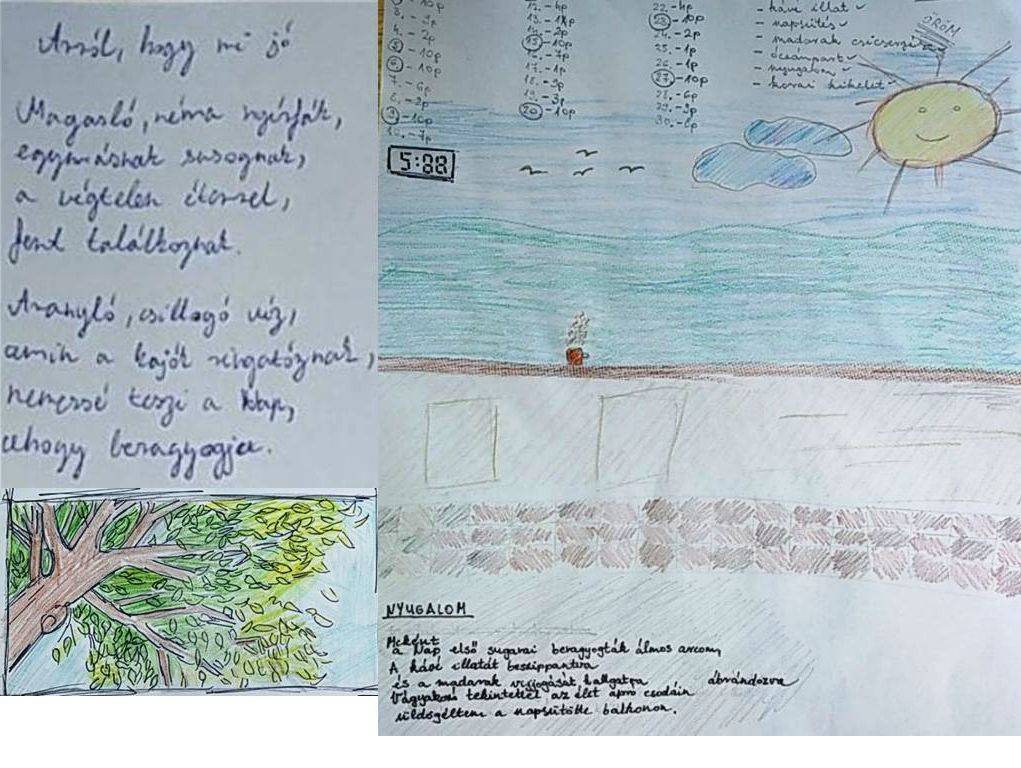 Arról, hogy mi jó
Magasló, néma nyírfák,
egymásnak susognak,
a végtelen éterrel,
fent találkoznak.
Aranyló, csillogó víz,
amin a hajók ringatóznak,
nemessé teszi a Nap,
ahogy beragyogja.
4. - 2p
5. - 10p
6. - 10p
7. - 6p
8. - 2p
9. - 10p
10. - 7p
12. - 4p
15. - 10p
17. - 1p
18. - 9p
19. - 3p
20. - 10p
22. - 4p
23. - 10p
24. - 2p
25. - 1p
26. - 1p
27. - 10p
28. - 6p
29. - 9p
30. - 8p
- kávé illat
- napsütés
- madarak csicsergése
- óceánpart
- nyugalom
- korai kikelet
ÖRÖM
5:88
NYUGALOM
Miként
a Nap első sugarai beragyogták álmos arcom,
A kávé illatát beszippantva
és a madarak vijjogását hallgatva ábrándozva
Vágyakozó tekintettel az élet apró csodáin
üldögéltem a napsütötte balkonon.